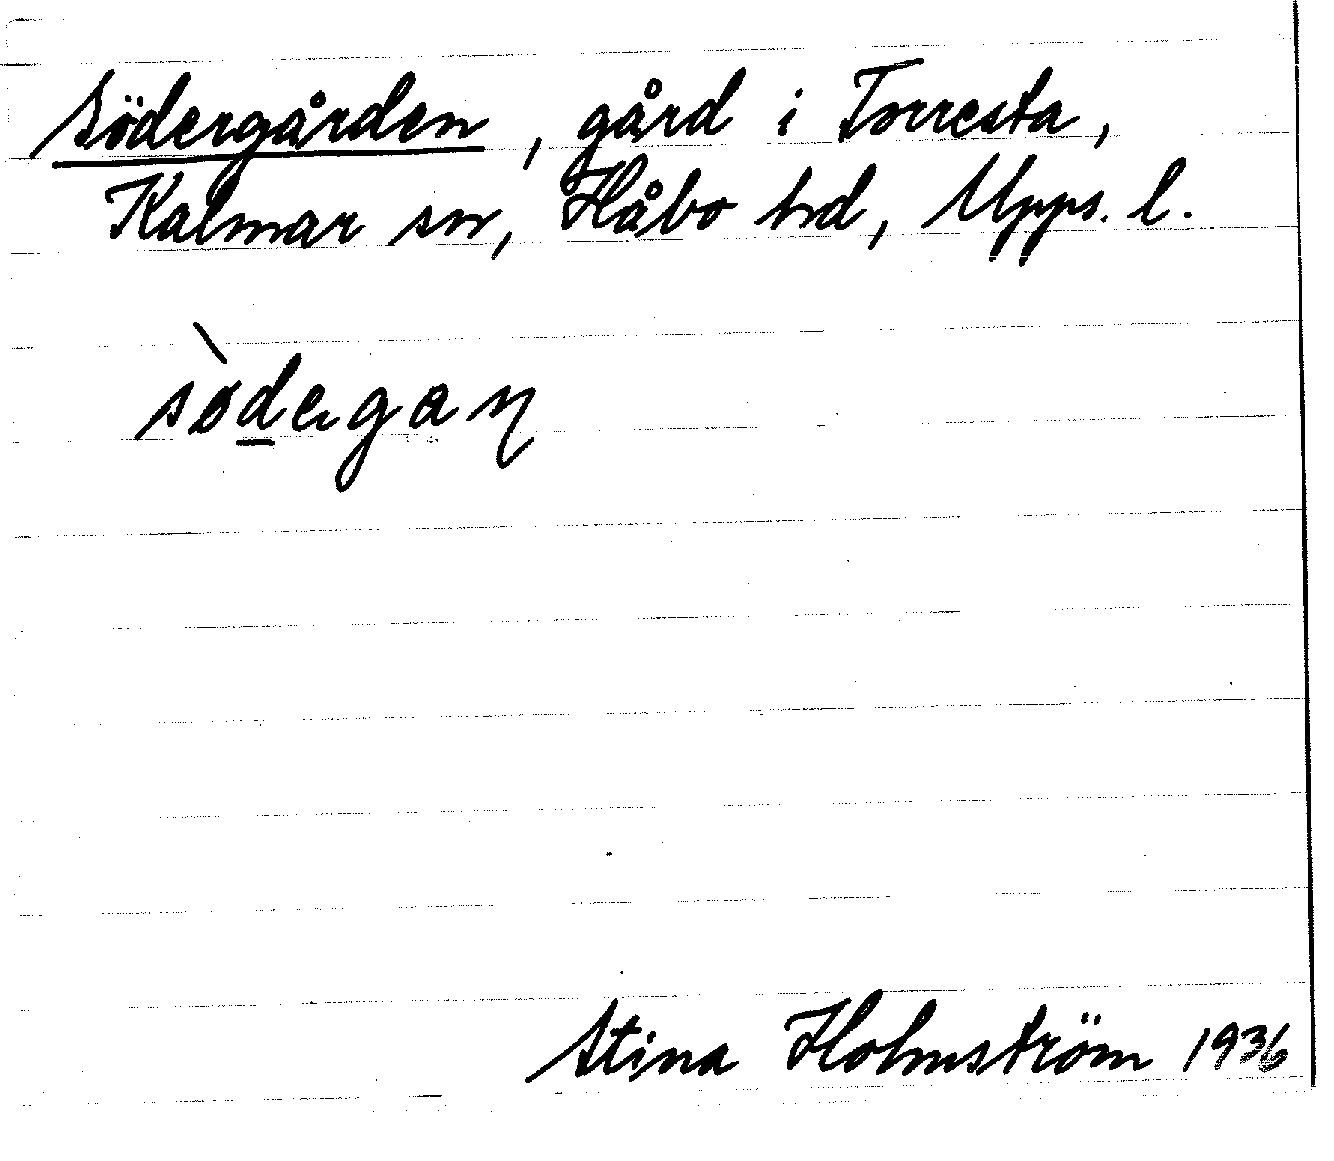 Södergården, gård i Torresta,
Kalmar sn, Håbo hd, Upps. l.
sø̀degaɳ
Stina Holmström 1936